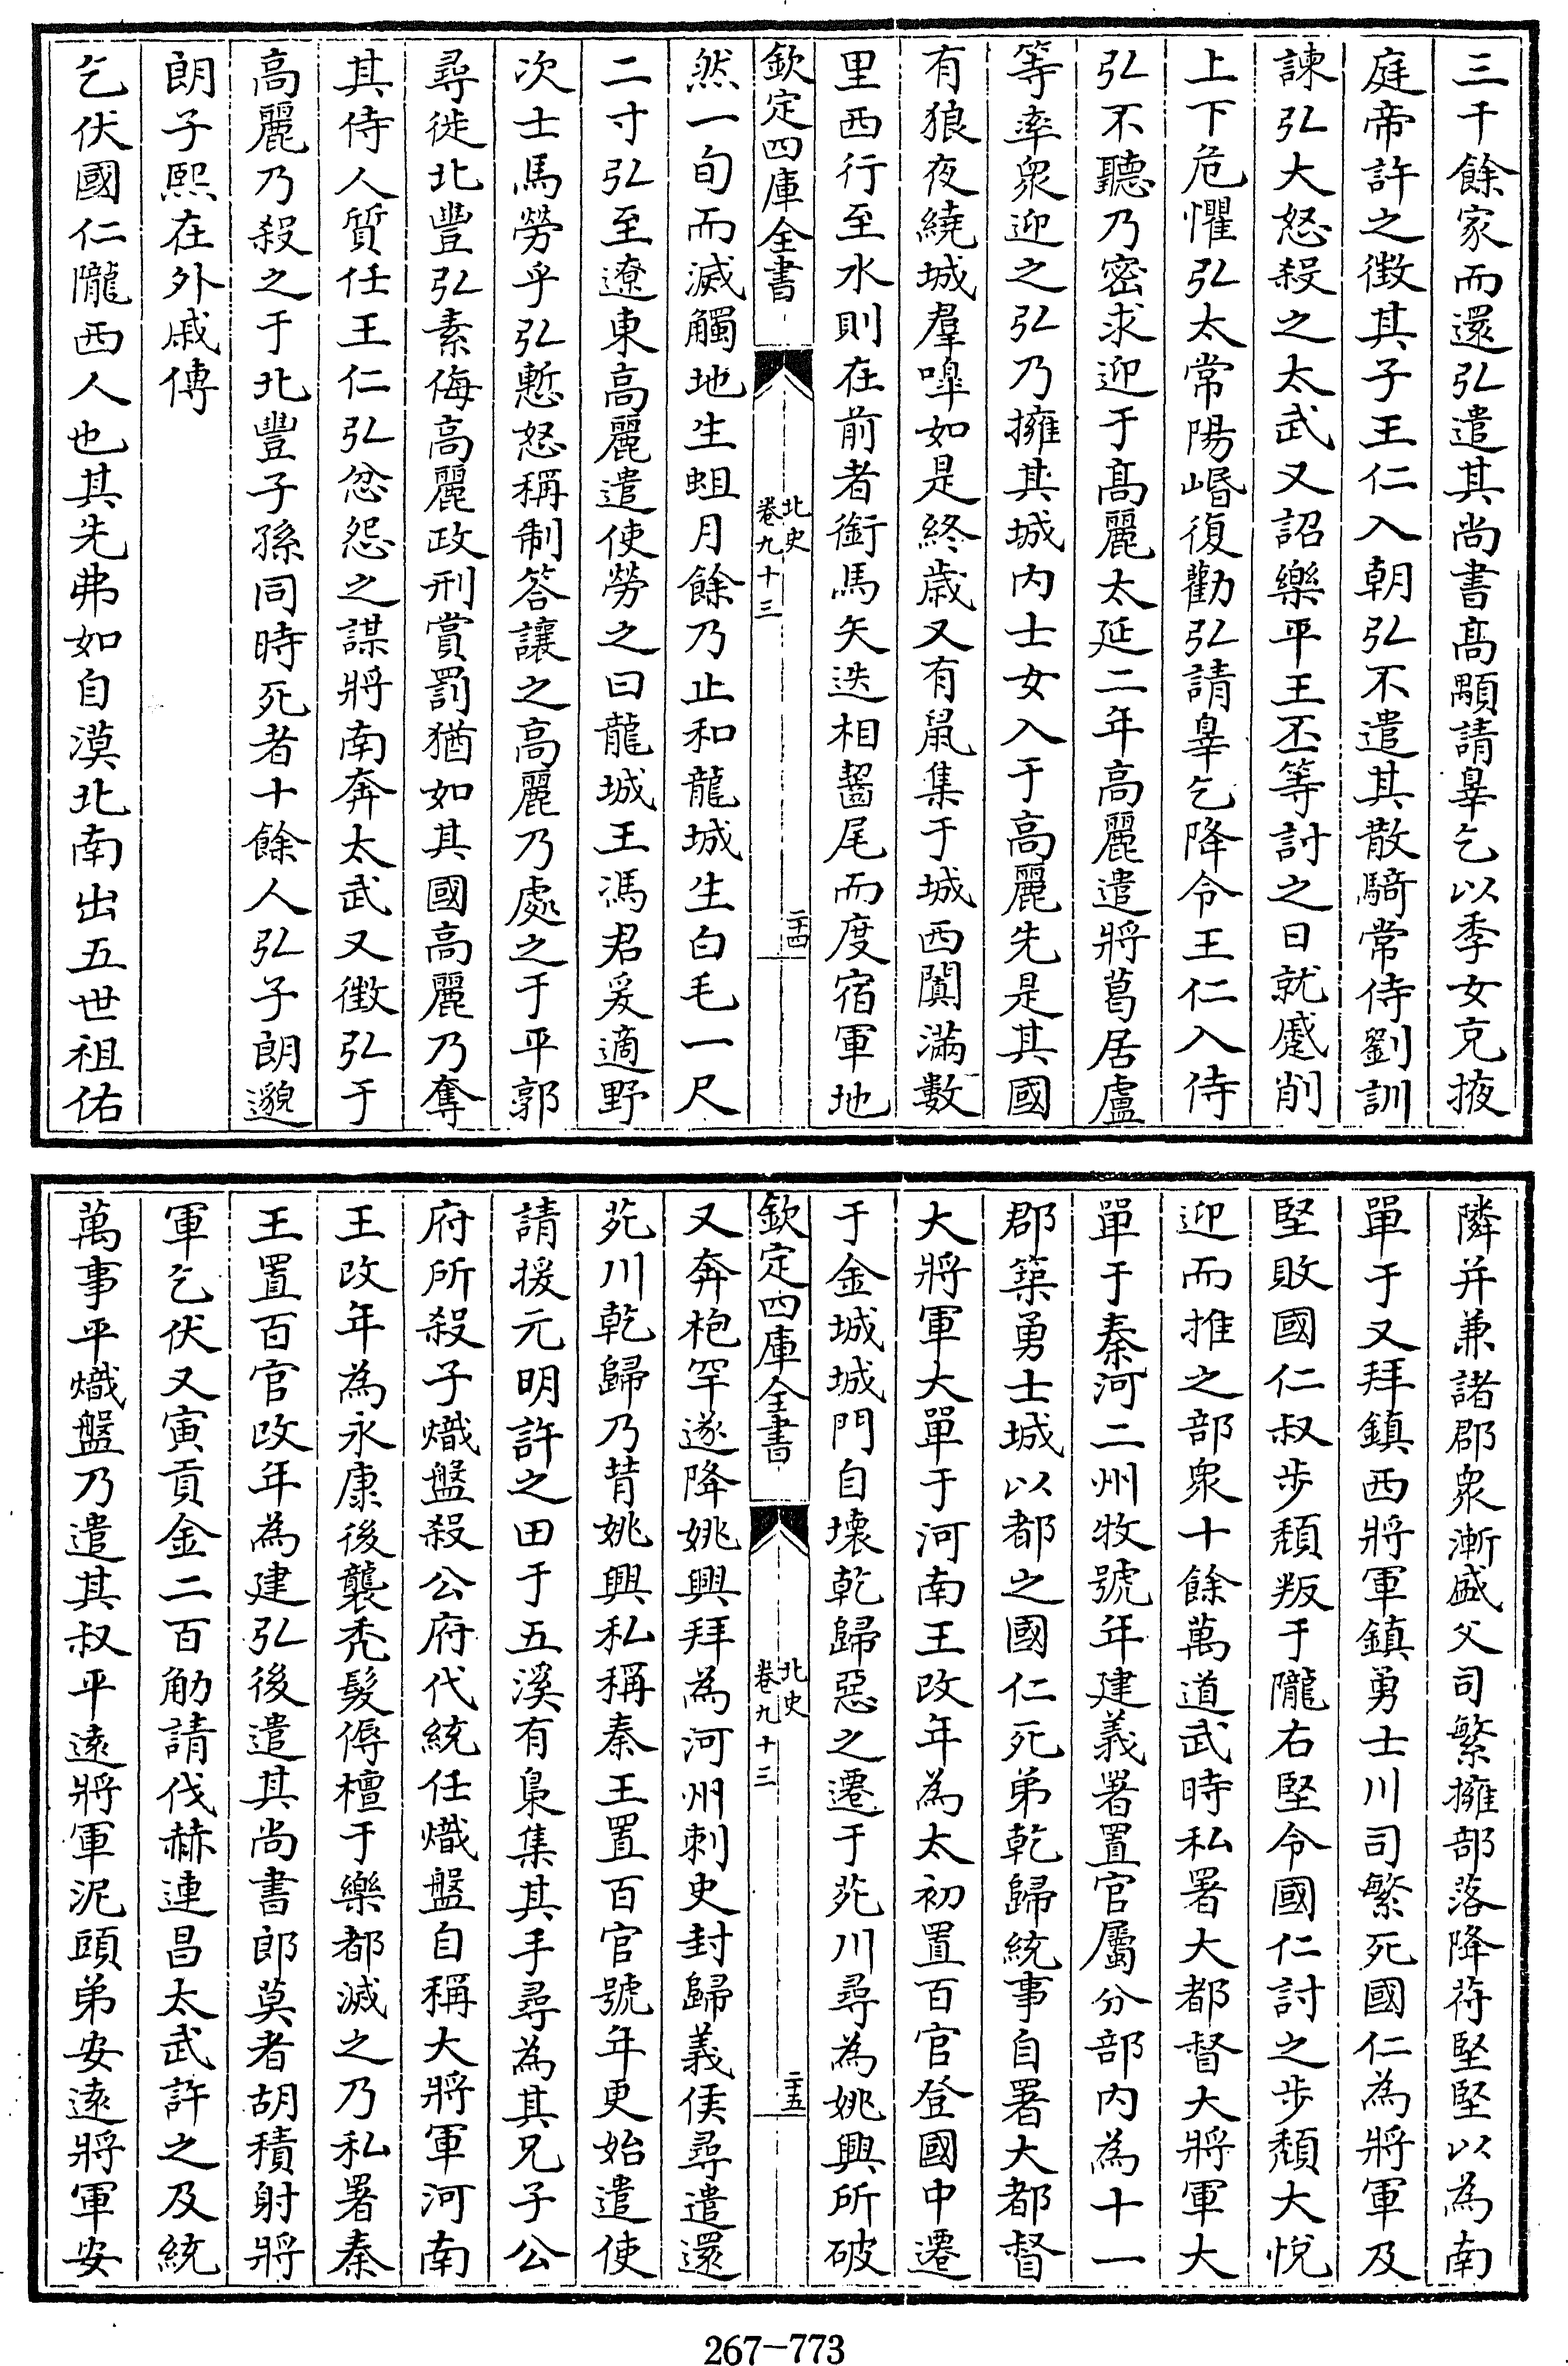 三千餘家而還弘遣其尚書高顒請辠乞以季女充掖
庭帝許之徴其子王仁入朝弘不遣其散騎常侍劉訓
諫弘大怒殺之太武又詔樂平王丕等討之日就蹙削
上下危懼弘太常陽㟭復勸弘請辠乞降令王仁入侍
弘不聽乃密求迎于高麗太延二年高麗遣將葛居盧
等率衆迎之弘乃擁其城内士女入于高麗先是其國
有狼夜繞城羣嘷如是終歲又有鼠集于城西闐滿數
里西行至水則在前者銜馬矢迭相齧尾而度宿軍地
欽定四庫全書
北史
卷九十三
二十四
然一旬而滅觸地生蛆月餘乃止和龍城生白毛一尺
二寸弘至遼東高麗遣使勞之曰龍城王馮君爰適野
次士馬勞乎弘慙怒稱制答讓之高麗乃處之于平郭
尋徙北豐弘素侮高麗政刑賞罰猶如其國高麗乃奪
其侍人質任王仁弘忿怨之謀將南奔太武又徴弘于
高麗乃殺之于北豐子孫同時死者十餘人弘子朗邈
朗子熙在外戚傳
乞伏國仁隴西人也其先弗如自漠北南出五世祖佑
隣并兼諸郡衆漸盛父司繁擁部落降苻堅堅以為南
單于又拜鎮西將軍鎮勇士川司繁死國仁為將軍及
堅敗國仁叔步頽叛于隴右堅令國仁討之步頽大悅
迎而推之部衆十餘萬道武時私署大都督大將軍大
單于秦河二州牧號年建義署置官屬分部内為十一
郡築勇士城以都之國仁死弟乾歸統事自署大都督
大將軍大單于河南王改年為太初置百官登國中遷
于金城城門自壊乾歸惡之遷于苑川尋為姚興所破
欽定四庫全書
北史
卷九十三
二十五
又奔枹罕遂降姚興拜為河州刺史封歸義侯尋遣還
苑川乾歸乃背姚興私稱秦王置百官號年更始遣使
請援元明許之田于五溪有梟集其手尋為其兄子公
府所殺子熾盤殺公府代統任熾盤自稱大將軍河南
王改年為永康後襲禿髮傉檀于樂都滅之乃私署秦
王置百官改年為建弘後遣其尚書郎莫者胡積射將
軍乞伏又寅貢金二百觔請伐赫連昌太武許之及統
萬事平熾盤乃遣其叔平遠將軍泥頭弟安遠將軍安
267-773